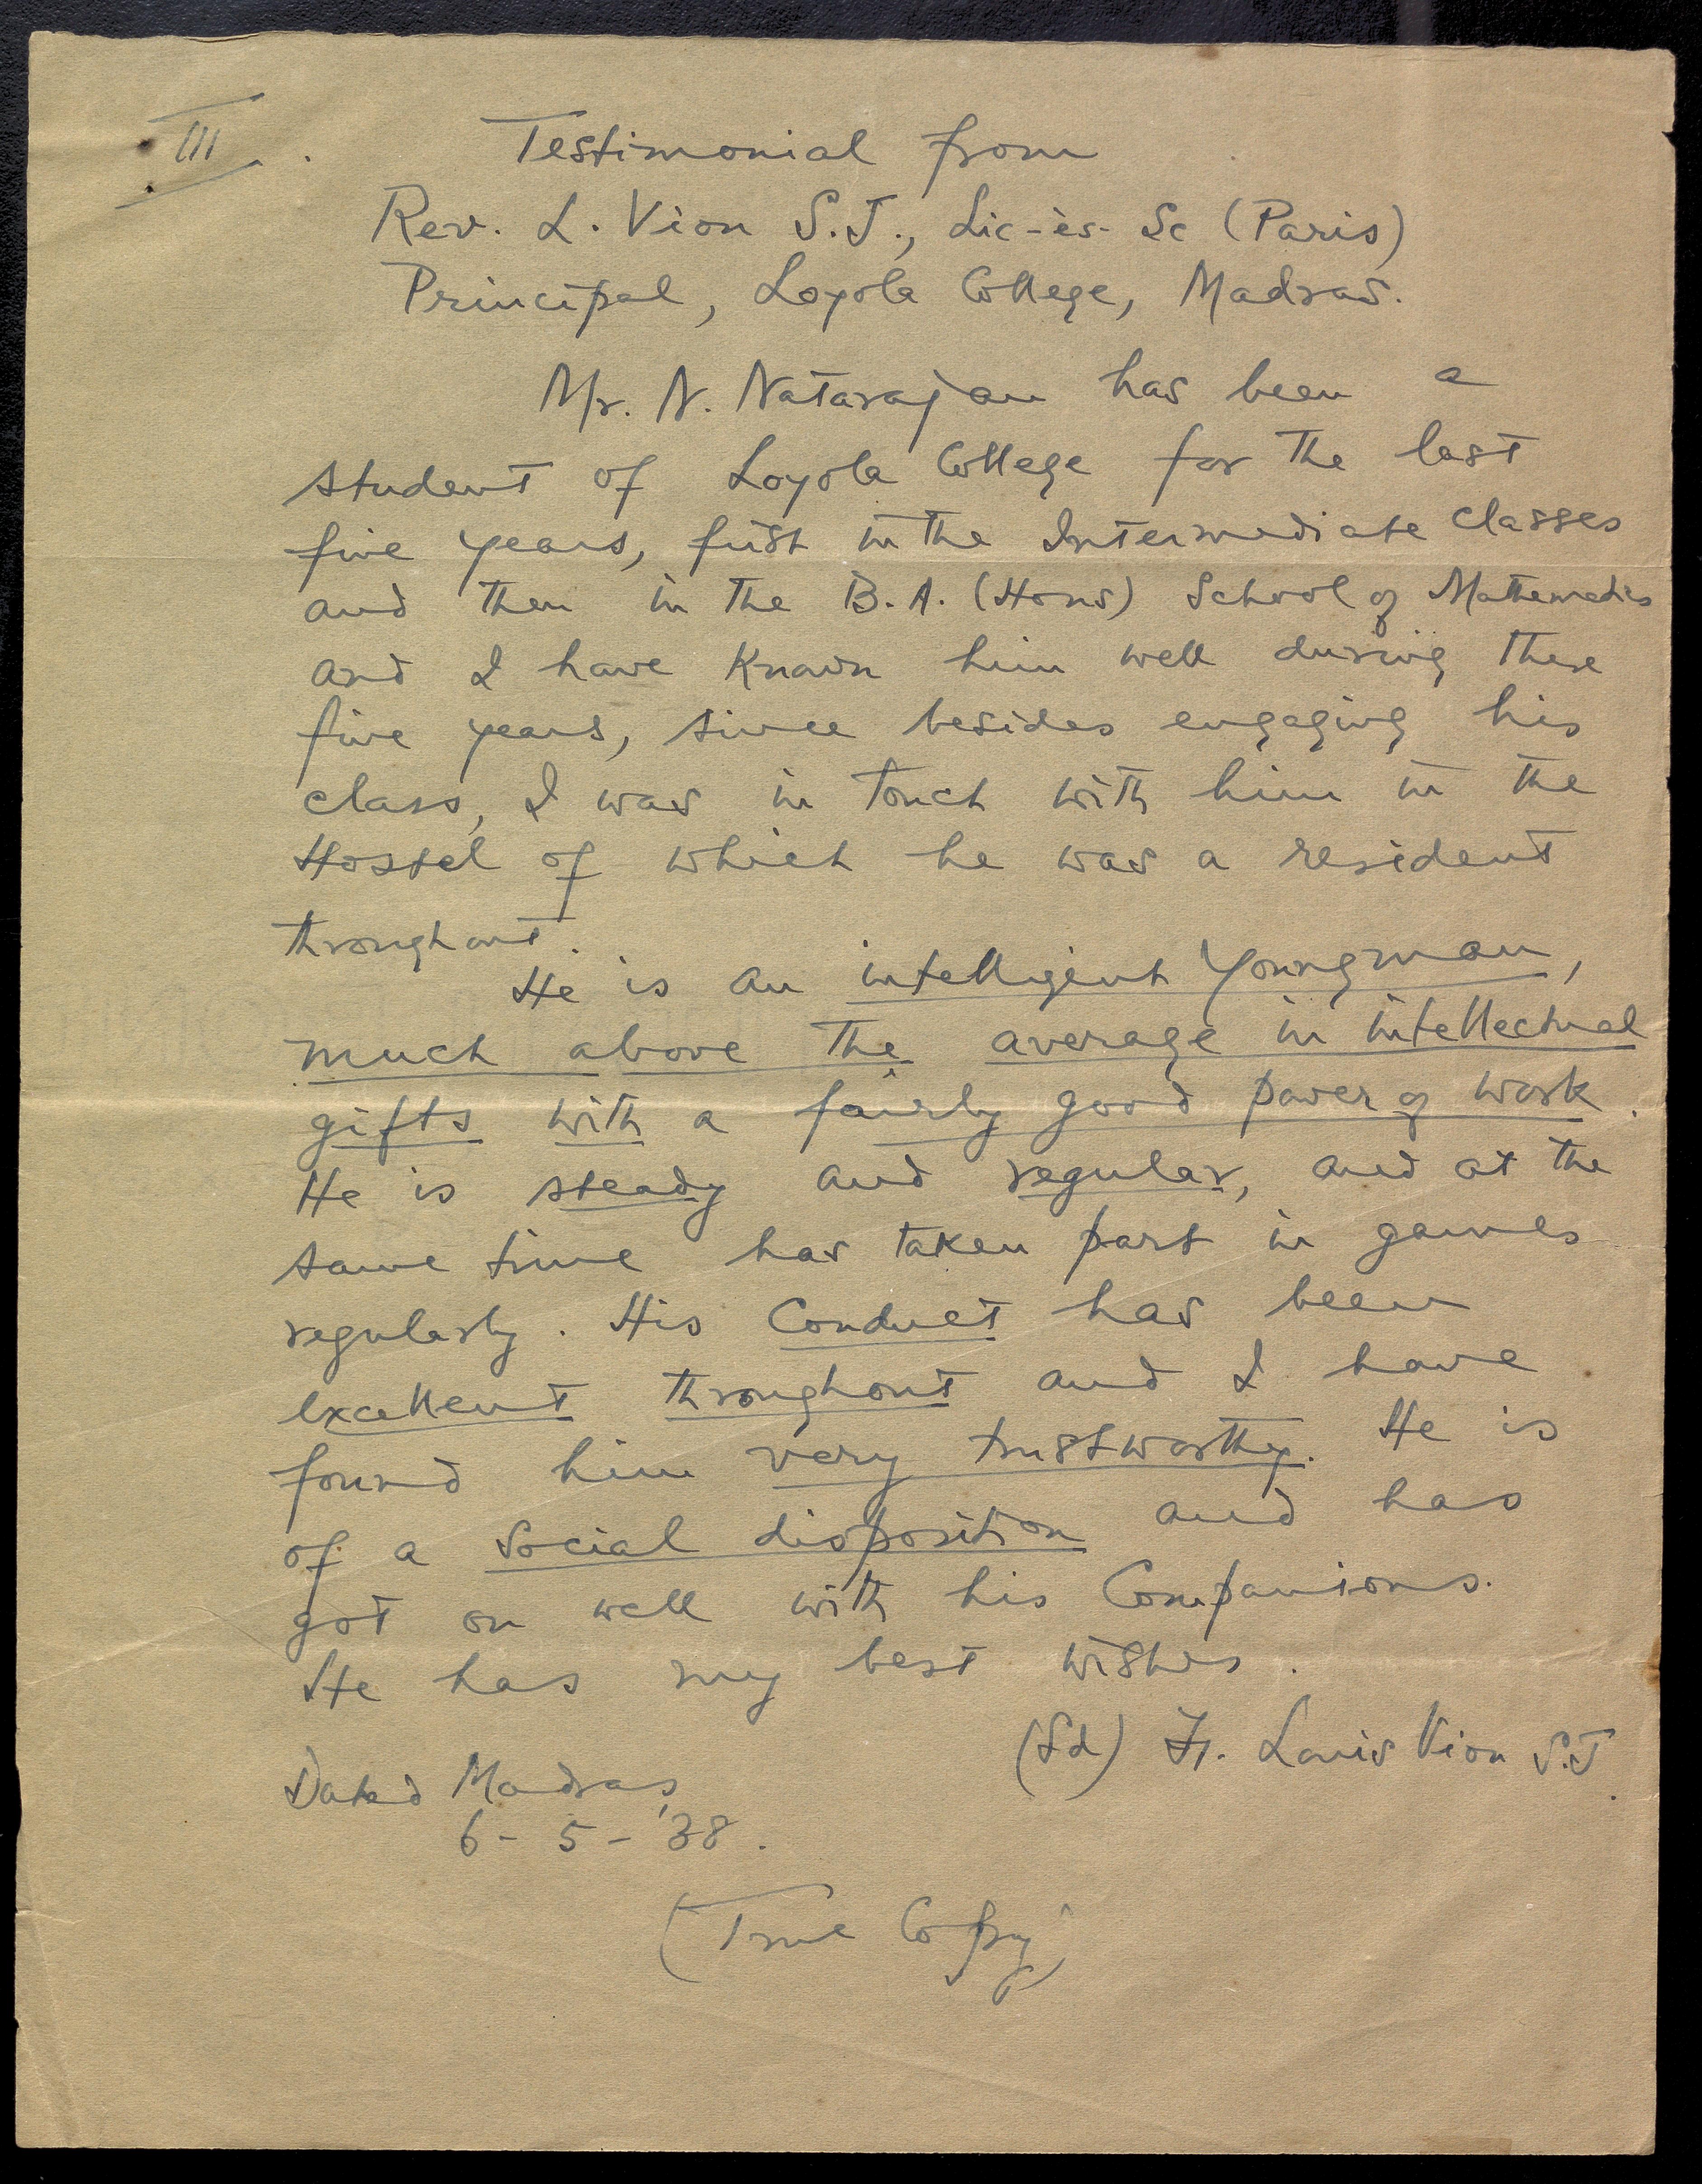 III.
Testimonial from
Rev. L. Vion S.J., Lic-ès-Sc (Paris)
Principal, Loyola College, Madras.
Mr. N. Natarajan has been a
student of Loyola College for the last
five years, first in the Intermediate classes
and then in the B.A. (Hons) School of Mathematics
and I have known him well during these
five years, since besides engaging his
class, I was in touch with him in the
Hostel of which he was a resident
throughout.
He is an intelligent youngman,
much above the average in intellectual
gifts with a fairly good power of work.
He is steady and regular, and at the
same time has taken part in games
regularly. His Conduct has been
excellent throughout and I have
found him very trustworthy. He is
of a social disposition and has
got on well with his Companions.
He has my best wishes.
(Sd) Fr. Louis Vion S.J.
Dated Madras,
6-5-'38.
(True Copy)